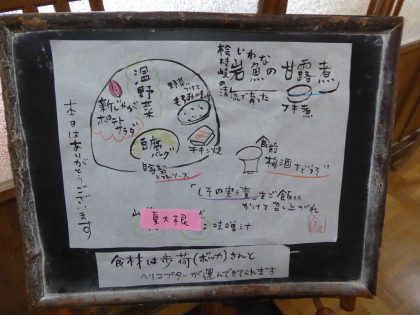 桧枝岐の清流で育った
いわな
岩魚の甘露煮
フキ煮
温野菜
野菜につけて
もろみみそ
新じゃが
ポテト
サラダ
豆腐
バーグ
自家製
トマトソース
チキン焼
食前
梅酒をどうぞ
「しその実漬」をご飯に
かけて召し上がれ
夏大根
味噌汁
本日はありがとうございます
食材は歩荷(ボッカ)さんと
ヘリコプターが運んできてくれます